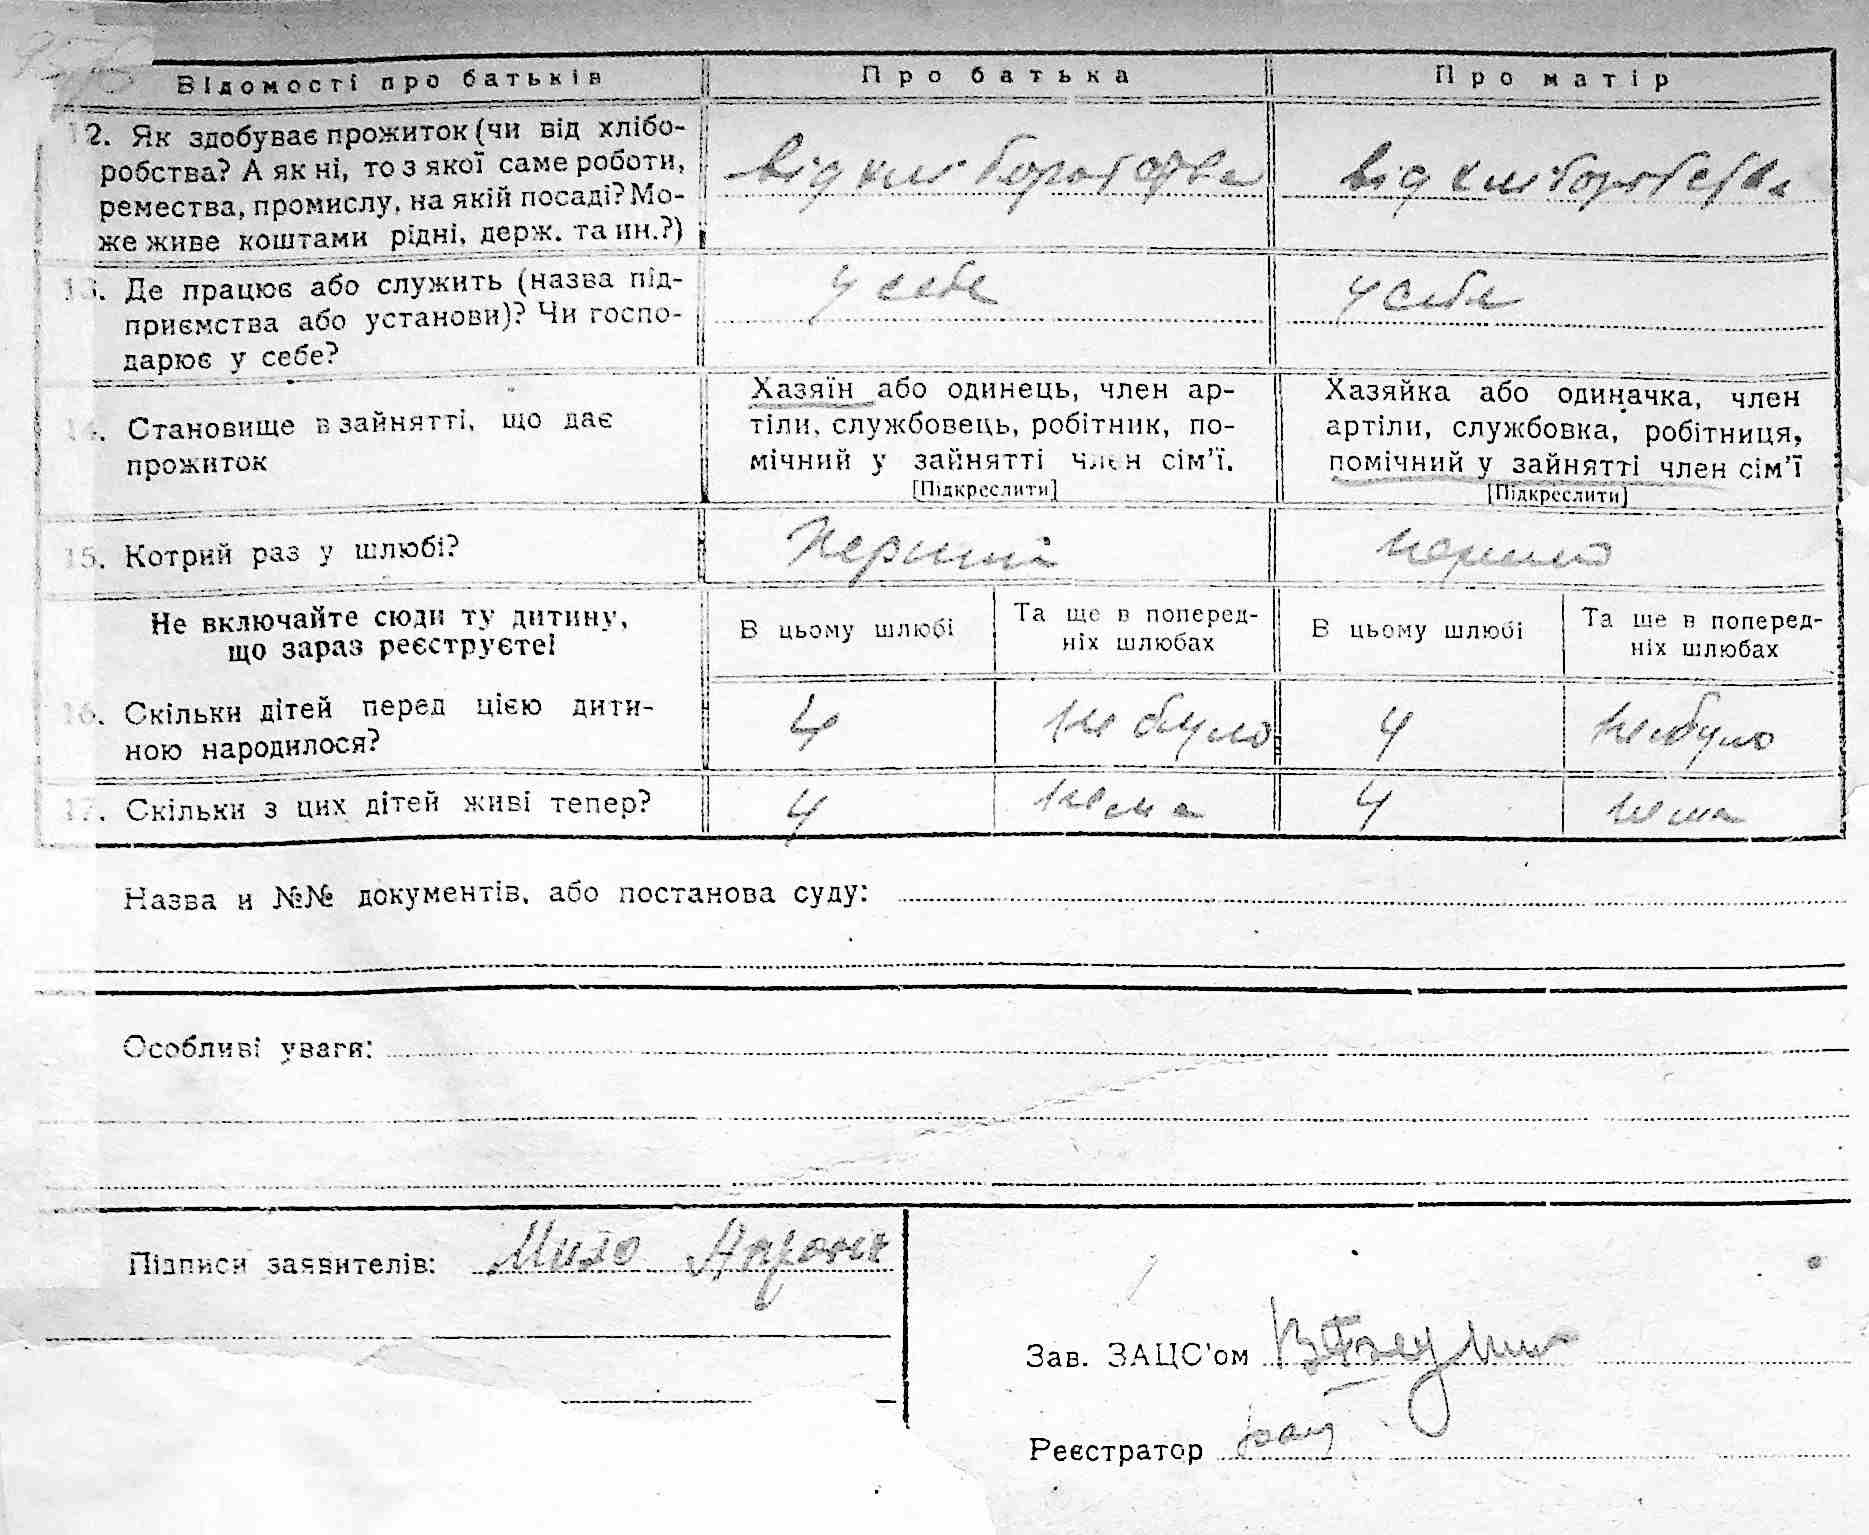 Відомості про батьків
Про батька
Про матір
12. Як здобуває прожиток (чи від хлібо-
робства? А як ні, то з якої саме роботи,
ремества, промислу, на якій посаді? Мо-
же живе коштами рідні, держ. та ин.?)
від хліборобства
від хліборобства
13. Де працює або служить (назва під-
приємства або установи)? Чи госпо-
дарює у себе?
у себе
у себе
14. Становище в зайнятті, що дає
прожиток
Хазяїн або одинець, член ар-
тіли, службовець, робітник, по-
мічний у зайнятті член сім'ї.
[Підкреслити]
Хазяйка або одиначка, член
артіли, службовка, робітниця,
помічний у зайнятті член сім'ї
[Підкреслити]
15. Котрий раз у шлюбі?
перший
перший
Не включайте сюди ту дитину,
що зараз реєструєте!
В цьому шлюбі
Та ще в поперед-
ніх шлюбах
В цьому шлюбі
Та ще в поперед-
ніх шлюбах
16. Скільки дітей перед цією дити-
ною народилося?
4
не було
4
не було
17. Скільки з цих дітей живі тепер?
4
нема
4
нема
Назва и №№ документів, або постанова суду:
Особливі уваги:
Підписи заявителів:
Зав. ЗАЦС'ом
Реєстратор